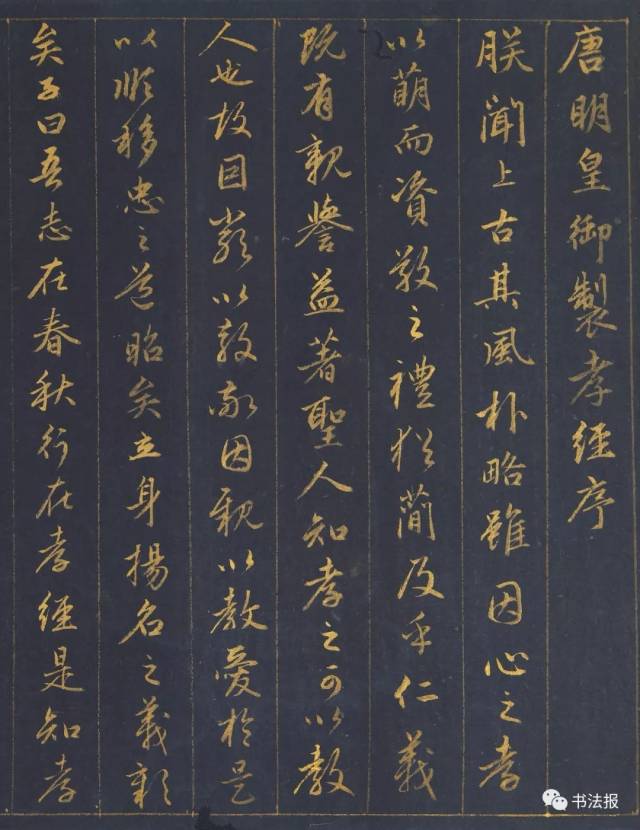 唐明皇御製孝經序
朕聞上古其風朴略雖因心之孝
以萌而資敬之禮猶簡及乎仁義
既有親譽益著聖人知孝之可以教
人也故因嚴以教敬因親以教愛於是
以順移忠之道昭矣立身揚名之義彰
矣子曰吾志在春秋行在孝經是知孝
书法报